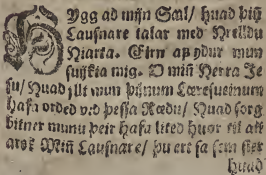 HYgg ad mijn Sæl/ huad þitz
Lausnare talar med Hrelldu
Hiarta. Eirn af ydur mun
suijkia mig. O min Herra Je
su/ Huad jllt mun þijnum Læresueinum
hafa orded v:d þessa Rædu/ Huad sorg
bitner munu þeir hafa lited huor til ann
ars Min Lausnare/ þu ert sa sem
huad